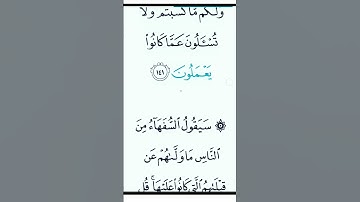 وَلَكُم مَّا كَسَبْتُمْ وَلَا
تُسْـَٔلُونَ عَمَّا كَانُوا۟
يَعْمَلُونَ ١٤١
۞ سَيَقُولُ ٱلسُّفَهَآءُ مِنَ
ٱلنَّاسِ مَا وَلَّىٰهُمْ عَن
قِبْلَتِهِمُ ٱلَّتِى كَانُوا۟ عَلَيْهَا ۚ قُل